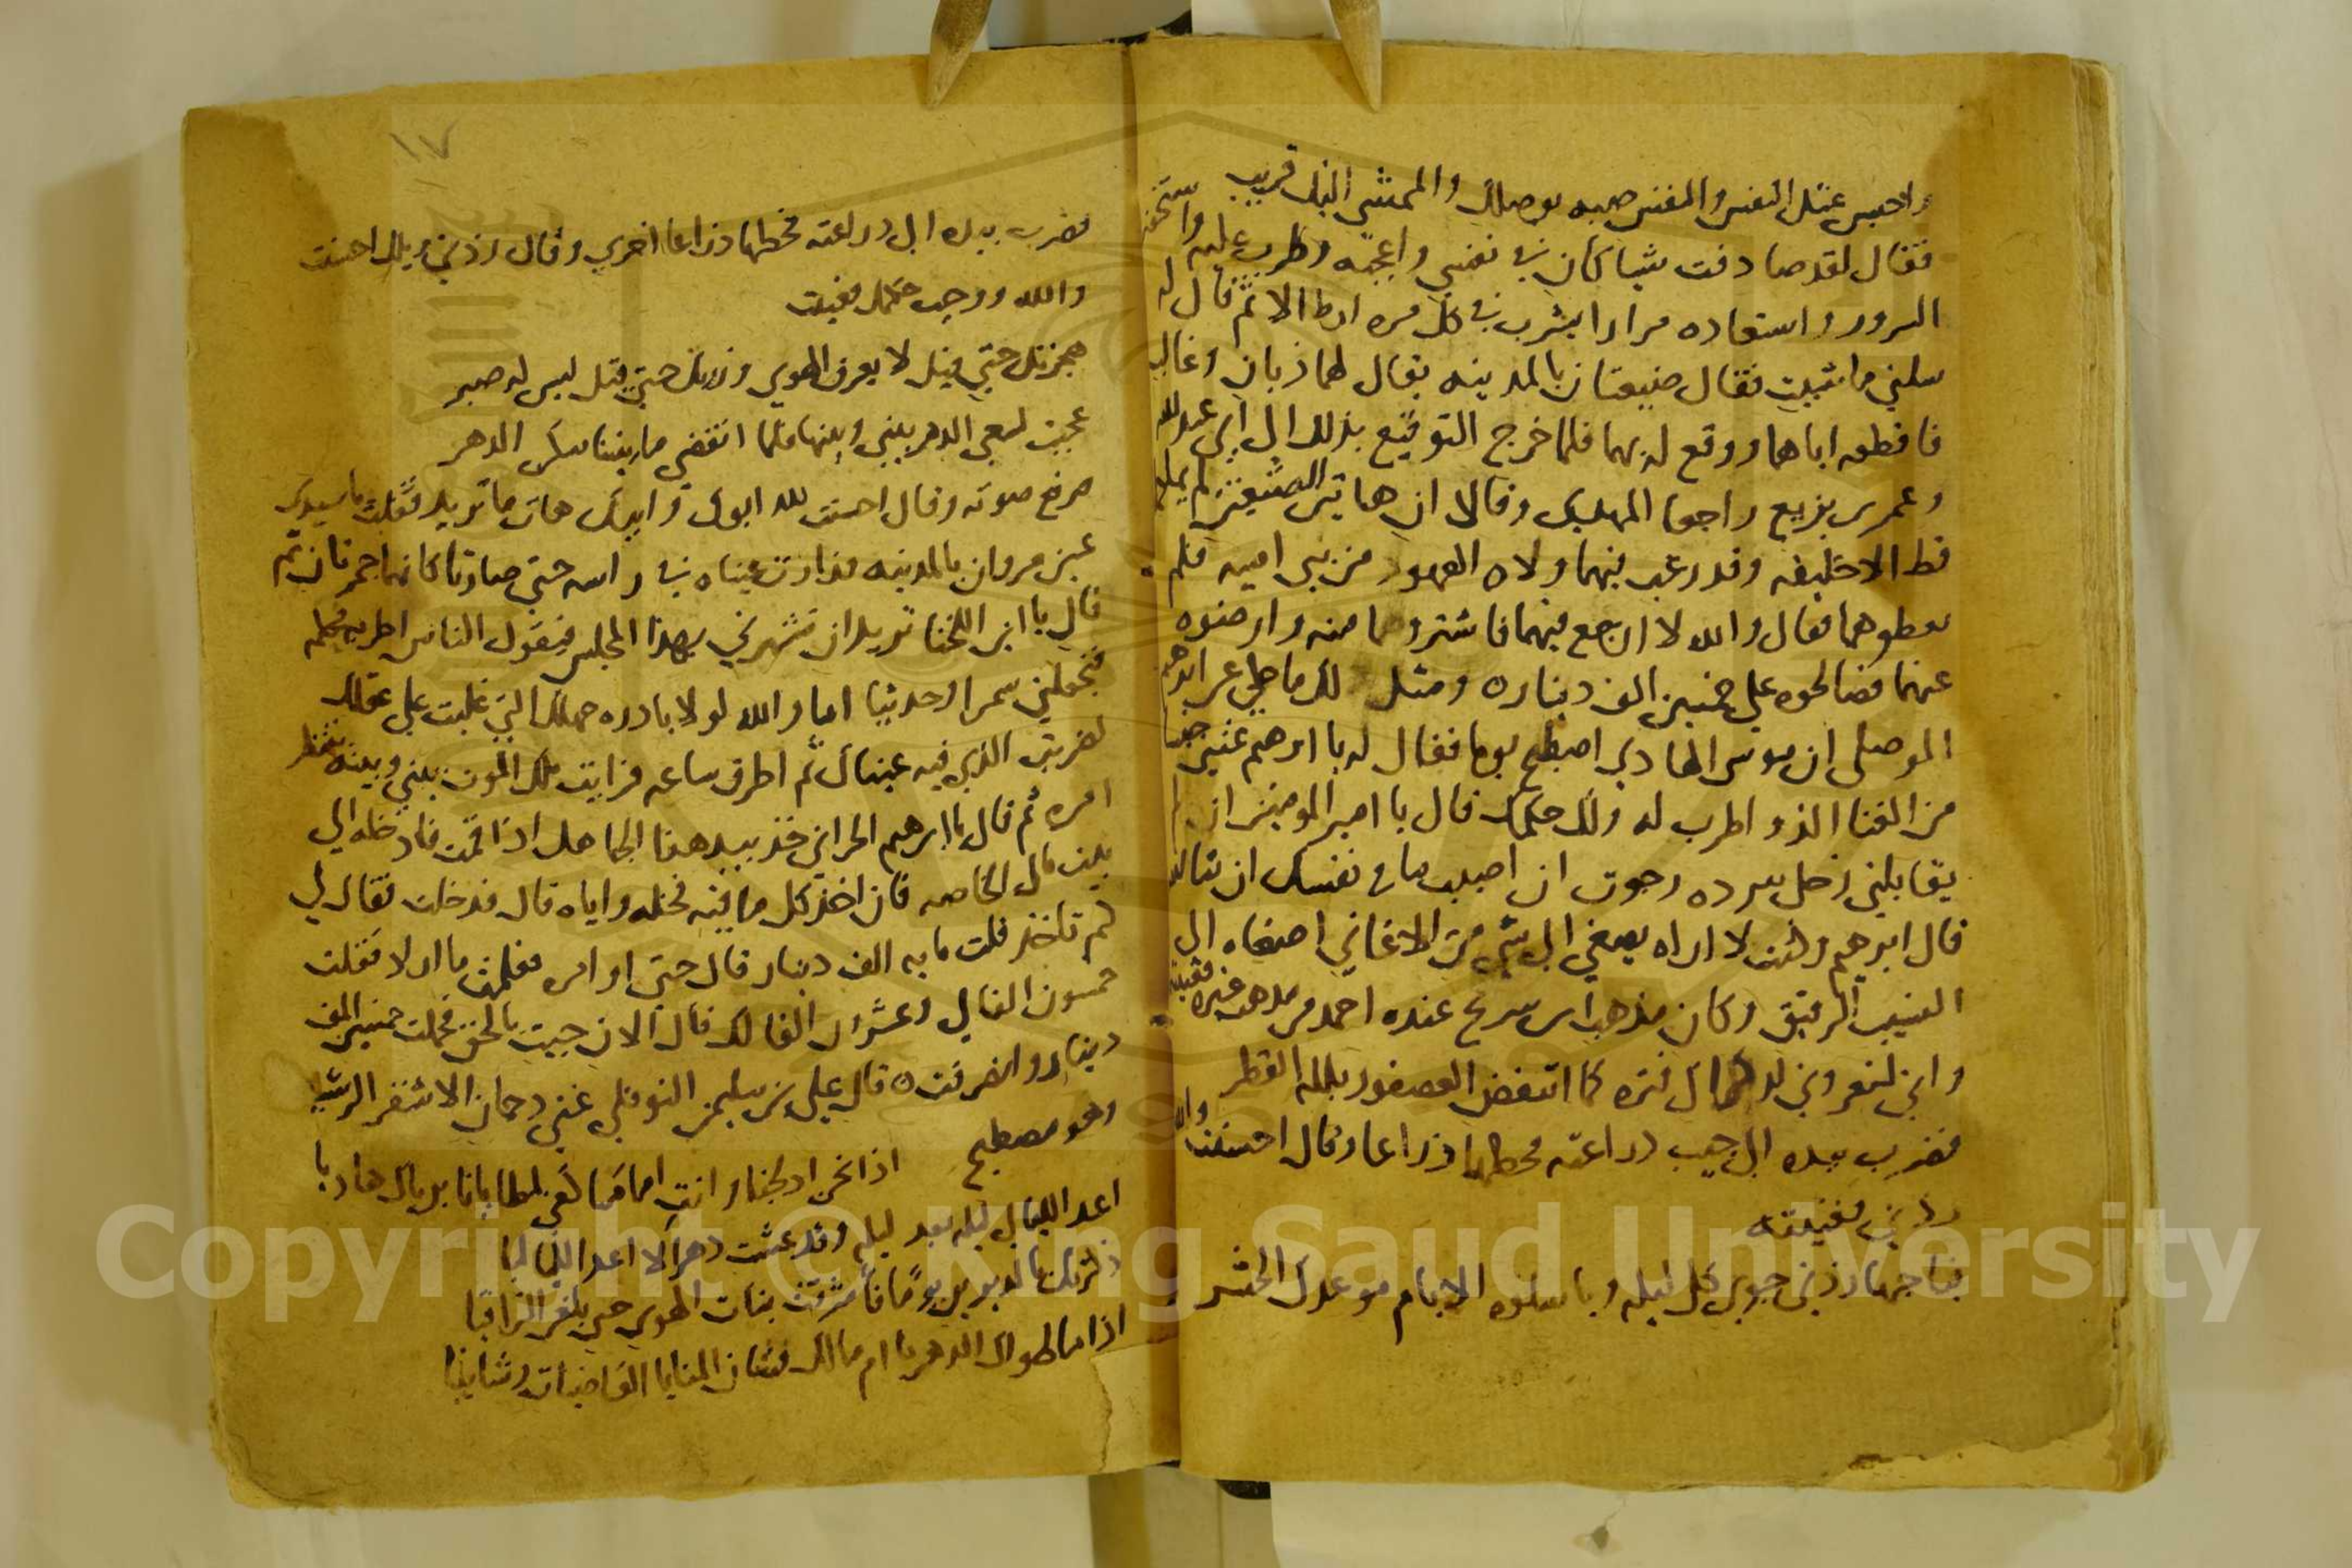 واحبس عنك النفس والنفس صبه بوصلك والممشى اليك قريب
فقال لقد صادفت شيا كان في نفسي واعجبه وطرب عليه واستخفه
السرور واستعاده مرارا يشرب في كل مره ارطالا ثم قال له
سلني ما شيت فقال ضيعتان بالمدينه يقال لهما ذبان وغالب
فاقطعه اياهما ووقع له بهما فلما خرج التوقيع بذلك الى ابي عبد الله
وعمر بن بزيع راجعا المهدي وقالا ان هاتين الضيعتين لم يملكهما
قط الا خليفه وقد رغب فيهما ولاه العهود من بني اميه فلم
يعطوهما فقال والله لا ارجع فيهما فاشتروهما منه وارضوه
عنهما فصالحوه على خمسين الف دينار ه ومثل ذلك ما حكي عن ابرهيم
الموصلى ان موسى الهادي اصطبح يوما فقال له يا ابرهيم غنني جنسا
من الغنا الذ واطرب له ولك حكمك قال يا امير المومنين ان لم
يقابلني زحل ببرده رجوت ان اصيب ما في نفسك ان شا الله
قال ابرهيم وكنت لا اراه يصغي الى شي من الاغاني اصغاه الى
النسيب الرقيق وكان مذهب ابن سريج عنده احمد من مذهب غيره فغنيته
واني لتعروني لذكراك فتره كما انتفض العصفور بلله القطر
فضرب بيده الى جيب دراعته فحطها ذراعا وقال احسنت والله
زدني فغنيته
فيا حبها زدني جوى كل ليله ويا سلوه الايام موعدك الحشر
١٧
فضرب بيده الى دراعته فحطها ذراعا اخرى وقال زدني ويلك احسنت
والله ووجب حكمك فغنيت
هجرتك حتى قيل لا يعرف الهوى وزرتك حتى قيل ليس له صبر
عجبت لسعي الدهر بيني وبينها فلما انقضى ما بيننا سكن الدهر
فرفع صوته وقال احسنت لله ابوك وابيك هات ما تريد فقلت يا سيدي
عين مروان بالمدينه فدارت عيناه في راسه حتى صارتا كانهما جمرتان ثم
قال يا ابن اللخنا تريد ان تشهرني بهذا المجلس فيقول الناس اطربه فحكمه
فتجعلني سمرا وحديثا اما والله لولا بادره جهلك التي غلبت على عقلك
لضربت الذي فيه عيناك ثم اطرق ساعه فرايت ملك الموت بيني وبينه ينتظر
امره ثم قال يا ابرهيم الحراني خذ بيد هذا الجاهل اذا قمت فادخله الى
بيت مال الخاصه فان اخذ كل ما فيه فخله واياه قال فدخلت فقال لي
كم تاخذ قلت مايه الف دينار قال حتى اوامره فعلمت ما اراد فقلت
خمسون الفا لي وعشرون الفا لك قال الان جيت بالحق فحملت خمسين الف
دينار وانصرفت ه قال علي بن سليمن النوفلي غنى دحمان الاشقر الرشيد
وهو مصطبح اذا نحن ادلجنا وانت امامنا كفى لمطايانا برياك هاديا
اعد الليالي ليله بعد ليله وقد عشت دهرا لا اعد اللياليا
ذكرتك بالديرين يوما فاشرفت بنات الهوى حتى بلغن التراقيا
اذا ما طواك الدهر يا ام مالك فشان المنايا القاضيات وشانيا